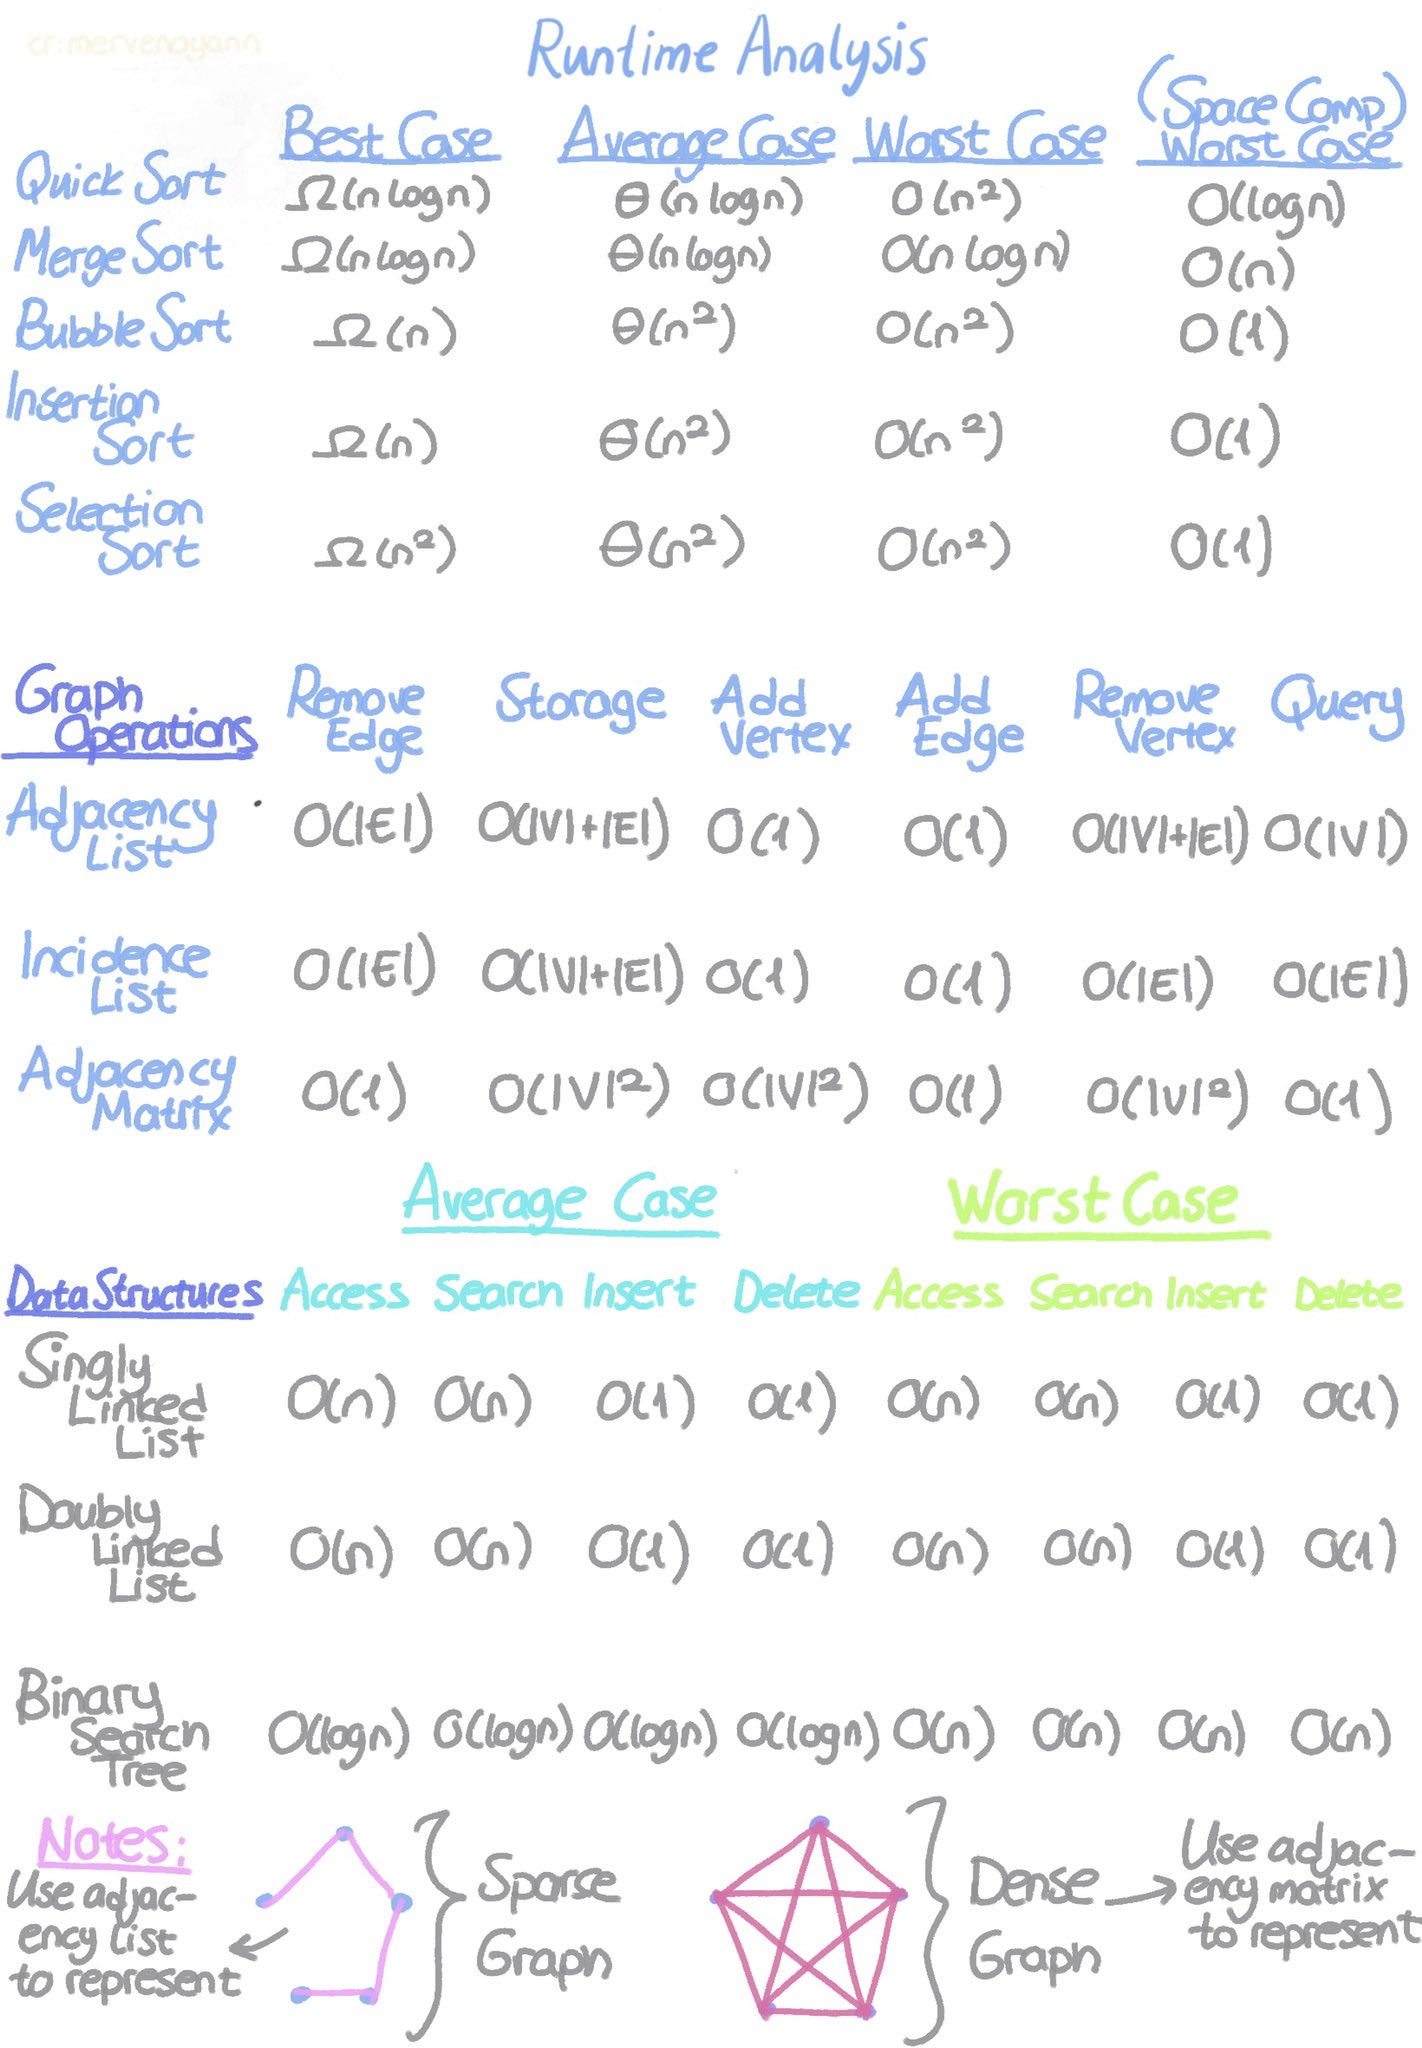 cr:mervenoyann
Runtime Analysis
Best Case Average Case Worst Case (Space Comp) Worst Case
Quick Sort Ω(n logn) Θ(n logn) O(n²) O(logn)
Merge Sort Ω(n logn) Θ(n logn) O(n logn) O(n)
Bubble Sort Ω(n) Θ(n²) O(n²) O(1)
Insertion Sort Ω(n) Θ(n²) O(n²) O(1)
Selection Sort Ω(n²) Θ(n²) O(n²) O(1)
Graph Operations Remove Edge Storage Add Vertex Add Edge Remove Vertex Query
Adjacency List O(|E|) O(|V|+|E|) O(1) O(1) O(|V|+|E|) O(|V|)
Incidence List O(|E|) O(|V|+|E|) O(1) O(1) O(|E|) O(|E|)
Adjacency Matrix O(1) O(|V|²) O(|V|²) O(1) O(|V|²) O(1)
Average Case Worst Case
Data Structures Access Search Insert Delete Access Search Insert Delete
Singly Linked List O(n) O(n) O(1) O(1) O(n) O(n) O(1) O(1)
Doubly Linked List O(n) O(n) O(1) O(1) O(n) O(n) O(1) O(1)
Binary Search Tree O(logn) O(logn) O(logn) O(logn) O(n) O(n) O(n) O(n)
Notes:
Use adjac-
ency list
to represent
Sparse
Graph
Dense
Graph
Use adjac-
ency matrix
to represent